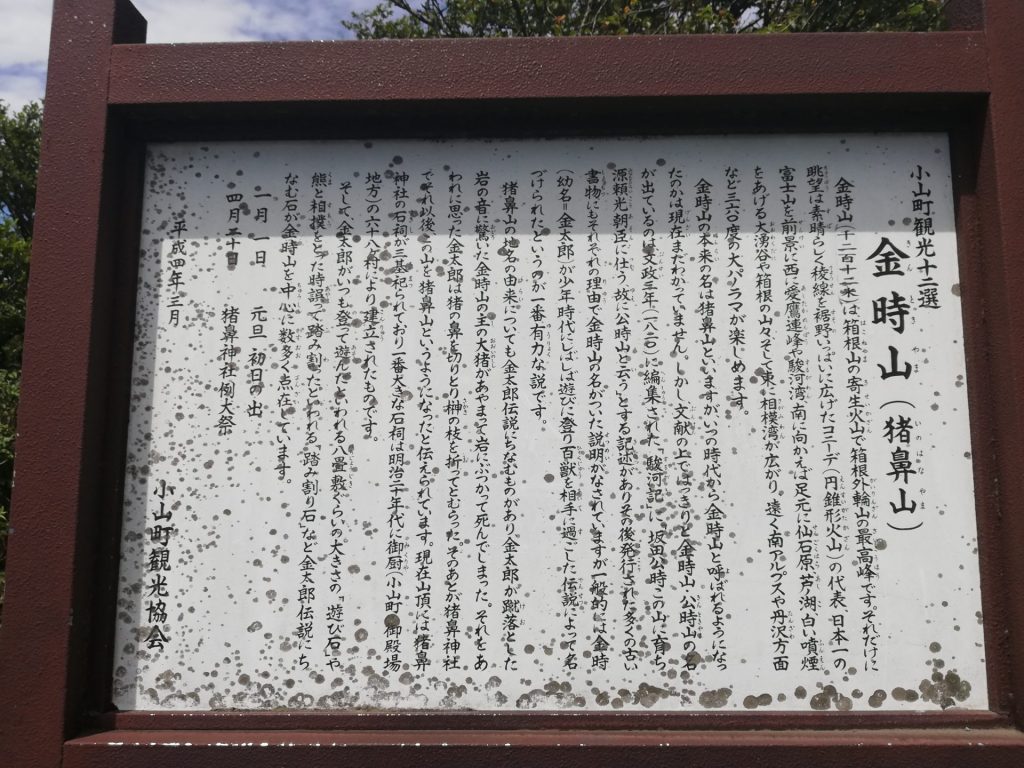 小山町観光十二選
金時山（猪鼻山）
金時山（一二百十二米）は箱根山の寄生火山で箱根外輪山の最高峰です。それだけに
眺望は素晴らしく稜線を裾野いっぱいに広げたコニーデ（円錐形火山）の代表、日本一の
富士山を前景に西に愛鷹連峰や駿河湾、南に向かえば足元に仙石原、芦ノ湖、白い噴煙
をあげる大湧谷や箱根の山々そして東に相模湾が広がり。遠く南アルプスや丹沢方面
など三六〇度の大パノラマが楽しめます。
金時山の本来の名は猪鼻山といいますがいつの時代から金時山と呼ばれるようになっ
たのかは現在まだわかっていません。しかし文献の上ではっきりと金時山、公時山の名
が出ているのは文政三年（一八二〇）に編集された「駿河記」に、坂田公時この山に育ち
源頼光朝臣に仕う、故に公時山と云う」とする記述がありその後発行された多くの古い
書物にもそれぞれの理由で金時山の名がついた説明がなされていますが一般的には金時
（幼名ー金太郎）が少年時代にしばしば遊びに登り百獣を相手に過ごした伝説によって名
づけられたというのが一番有力な説です。
猪鼻山の地名の由来についても金太郎伝説にちなむものがあり金太郎が蹴落とした
岩の音に驚いた金時山の主の大猪があやまって岩にぶつかって死んでしまった それをあ
われに思った金太郎は猪の鼻を切りとり榊の枝を折ってとむらった。そのあとが猪鼻神社
でそれ以後、この山を猪鼻山というようになったと伝えられています。現在山頂には猪鼻
神社の石祠が三基祀られており一番大きな石祠は明治二十年代に御厨（小山町・御殿場
地方）の六十八村により建立されたものです。
そして、金太郎がいつも登って遊んだといわれる八畳敷ぐらいの大きさの「遊び石」や
熊と相撲をとった時誤って踏み割ったといわれる「踏み割り石」など金太郎伝説にち
なむ石が金時山を中心に数多く点在しています。
一月 一 日 元旦 初日の出
四月二十日 猪鼻神社例大祭
平成四年三月
小山町観光協会